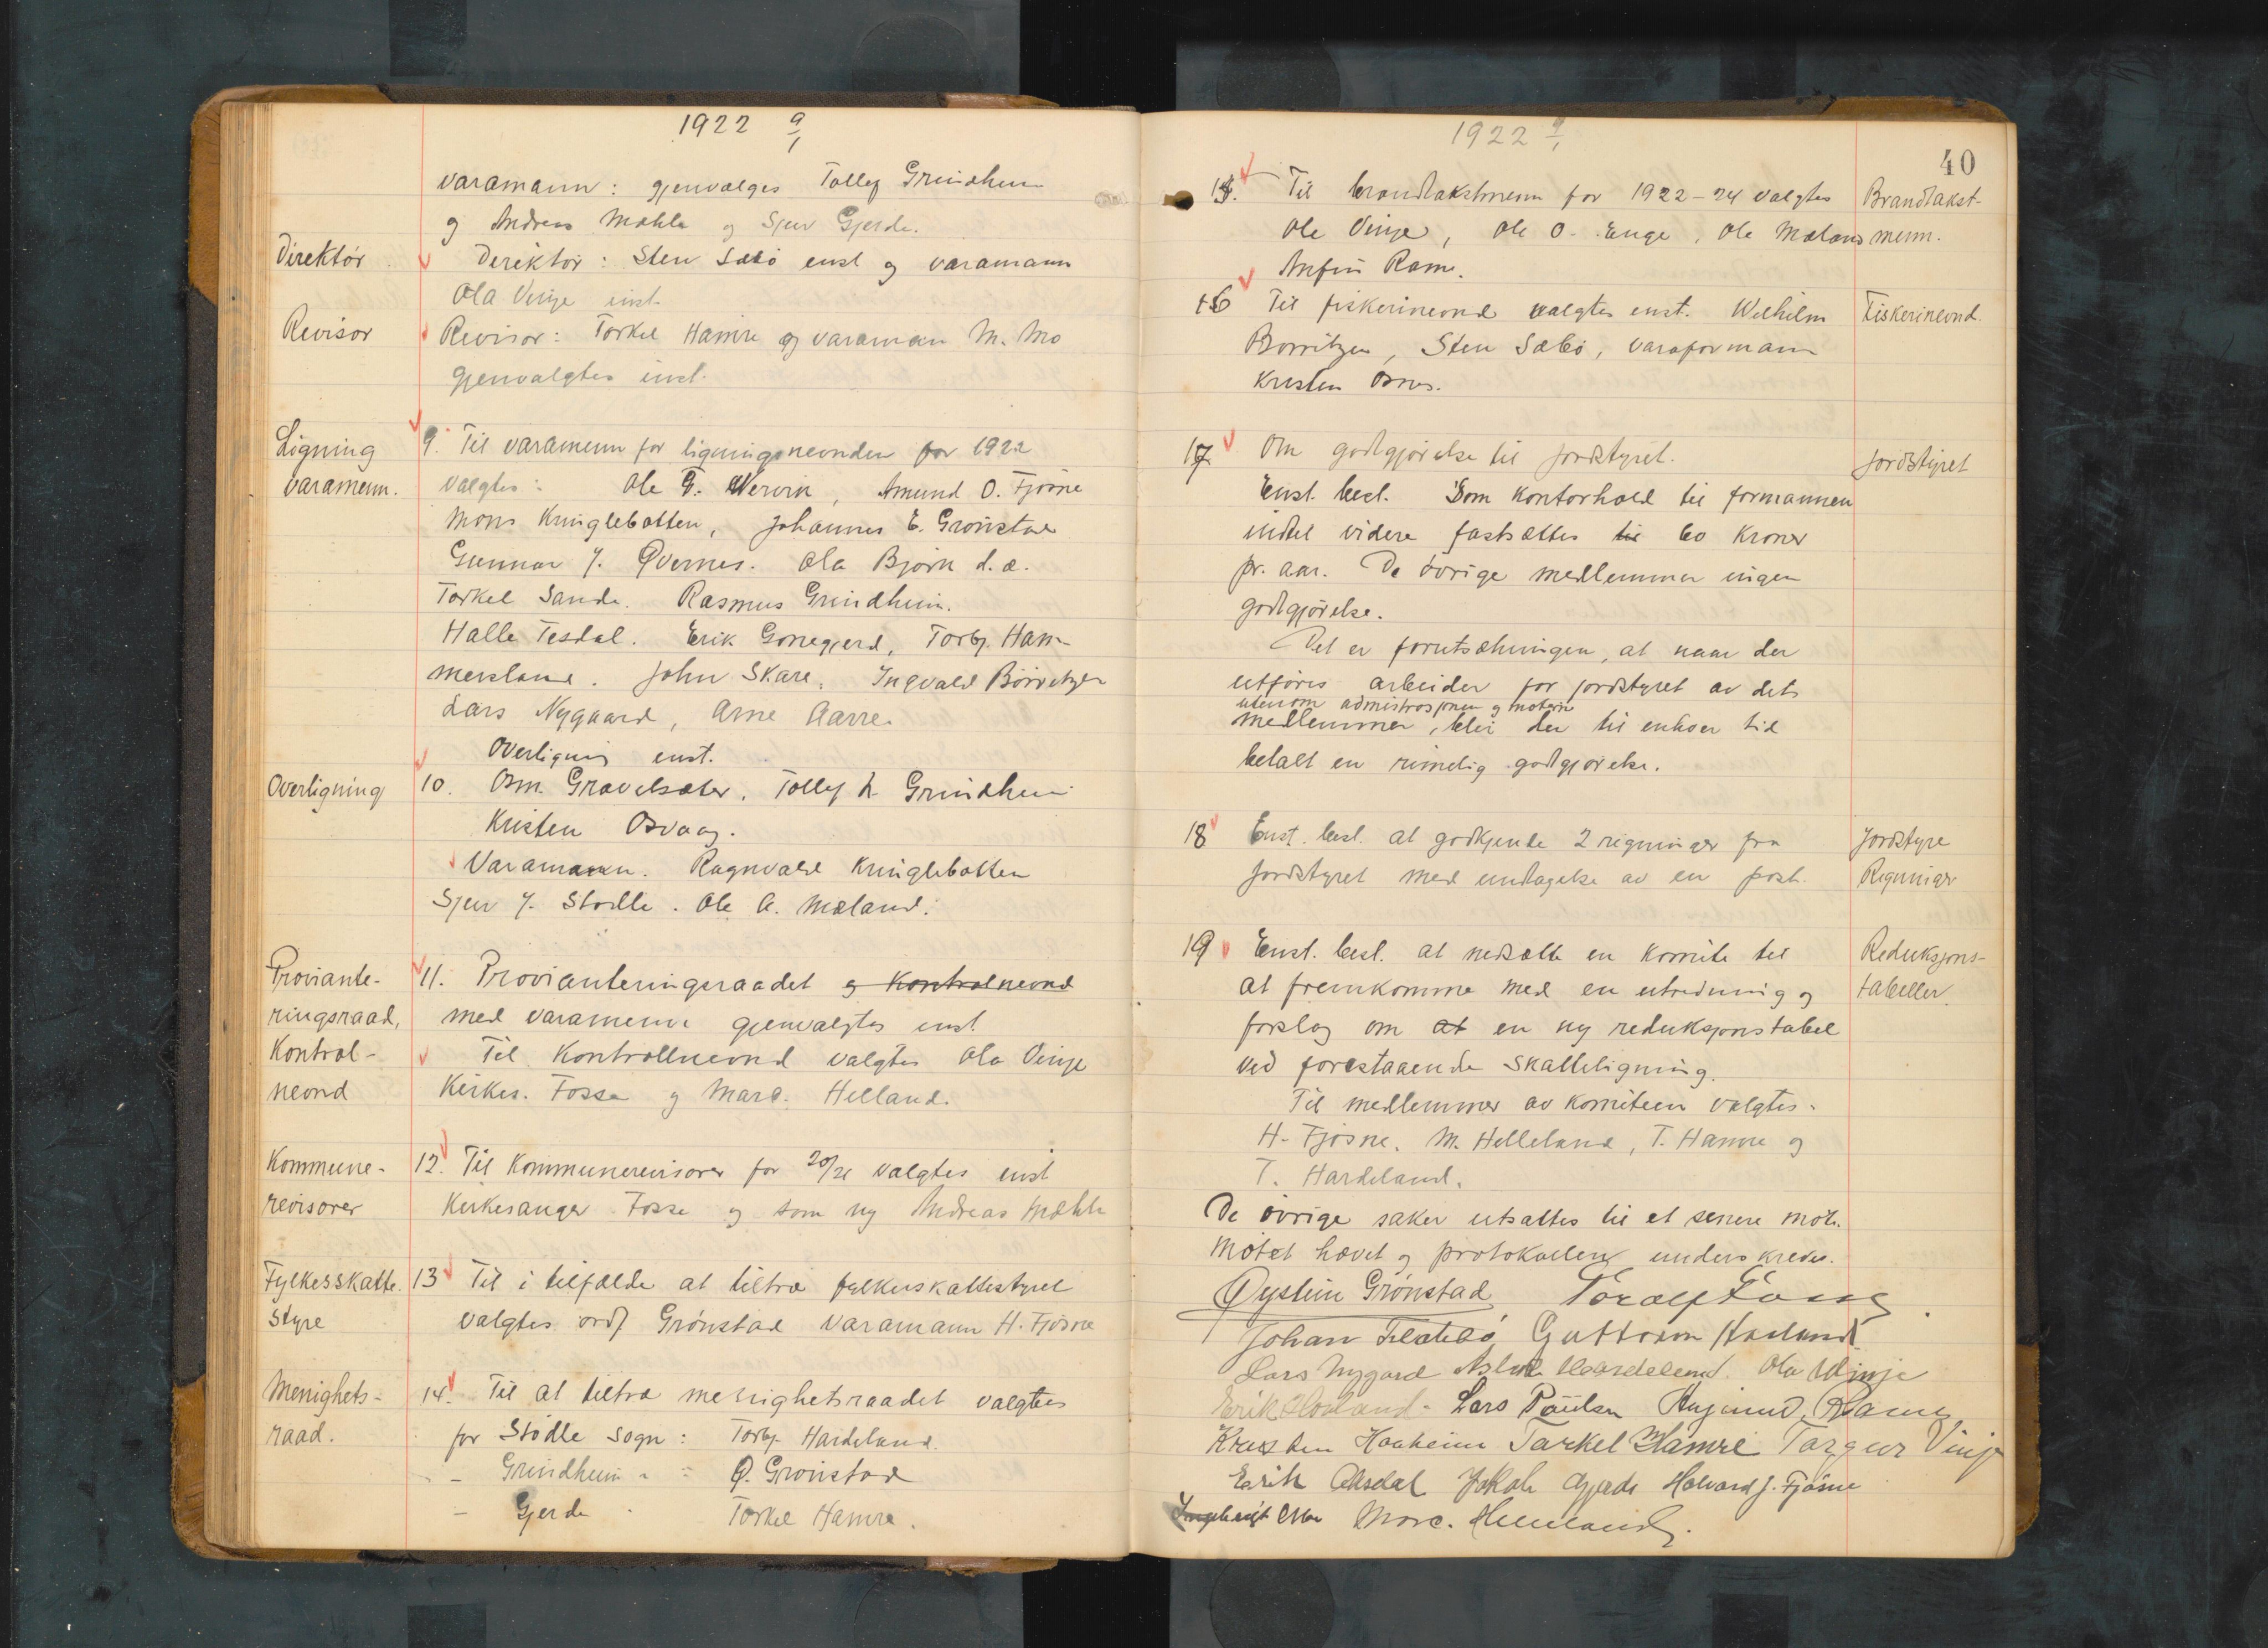 1922 9/1
varamann: gjenvalges Tollef Grindheim
og Andreas Mæhle og Sjur Gjerde.
Direktör
Direktör: Sten Sæbö enst og varamann
Ola Vinje enst.
Revisor
Revisor: Torkel Hamre og varaman M. Mo
gjenvalgtes enst.
Ligning
varamenn.
9. Til varamenn for ligningsnevnden for 1922
valgtes: Ole T. Nervik, Amund O. Fjösne
Mons Kringlebotten, Johannes E. Grönstad
Gunnar J. Øvernes. Ola Björk d.æ.
Torkel Sande. Rasmus Grindheim.
Halle Tesdal. Erik Gonegjerd, Torbj. Ham-
mersland. John Skare. Ingvald Börretzen
Lars Nygaard, Arne Aarre.
Overligning enst.
Overligning
10. Osm. Gravelsæter. Tollef H. Grindheim
Kristen Osvaag.
Varamann. Ragnvald Kringlebotten
Sjur J. Stödle. Ole A. Mæland.
Proviante-
ringsraad,
Kontrol-
nevnd
11. Provianteringsraadet og Kontrolnevnd
med varamenn gjenvalgtes enst
Til Kontrollnevnd valgtes Ola Vinje
Kirkes. Fosse og Marc. Helland.
Kommune-
revisorer
12. Til Kommunerevisorer for 20/21 valgtes enst
Kirkesanger Fosse og som ny Andreas Mæhle
Fylkesskatte-
styre
13 Til i tilfælde at tiltræ fylkesskattestyret
valgtes ordf Grönstad varamann H. Fjösne
Menighets-
raad.
14. Til at tiltræ menighetsraadet valgtes
for Stödle Sogn: Torbj. Hardeland.
- Grindheim " = Ø. Grönstad
- Gjerde - Torkel Hamre.
1922 9/1
40
15. Til brandtakstmenn for 1922-24 valgtes
Ole Vinje, Ole O. Enge, Ole Mæland
Anfin Rame.
Brandtakst-
menn.
16 Til fiskerinevnd valgtes enst. Wilhelm
Borritzen, Sten Sæbö, varaformann
Kristen Osnes.
Fiskerinevnd.
17 Om godtgjörelse til jordstyret.
Jordstyret
Enst. besl. Som Kontorhold til formannen
indtil videre fastsættes til 60 Kroner
pr. aar. De övrige medlemmer ingen
godtgjörelse.
Det er forutsætningen, at naar der
utföres arbeider for jordstyret av dets
utenom administrasjonen og möterne
medlemmer, blir der til enhver tid
betalt en rimelig godtgjörelse.
18 Enst. besl. at godkjende 2 regninger fra
jordstyret med undtagelse av en post.
Jordstyre
Regninger
19 Enst. besl. at nedsætte en komite til
at fremkomme med en utredning og
forslag om at en ny reduksjonstabel
ved forestaaende Skatteligning.
Reduksjons-
tabeller.
Til medlemmer av komiteen valgtes.
H. Fjösne, M. Helleland, T. Hamre og
T. Hardeland.
De övrige saker utsattes til et senere möte.
Mötet hævet og protokollen underskreves.
Øystein Grönstad
Johan Guttorm
Lars Nygard Hardeland. Ola Winje
Erik Lars Poulsen
Kristen Haaheim Torkel Hamre Torgeir Vinje
Erik Jakob Gjerde Halvard J. Fjösne
Marc.